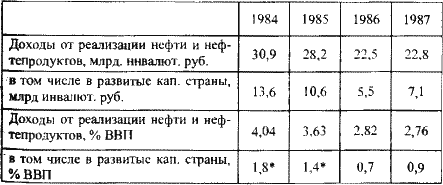 1984 1985 1986 1987
Доходы от реализации нефти и неф-
тепродуктов, млрд. инвалют. руб. 30,9 28,2 22,5 22,8
в том числе в развитые кап. страны,
млрд инвалют. руб. 13,6 10,6 5,5 7,1
Доходы от реализации нефти и неф-
тепродуктов, % ВВП 4,04 3,63 2,82 2,76
в том числе в развитые кап. страны,
% ВВП 1,8* 1,4* 0,7 0,9